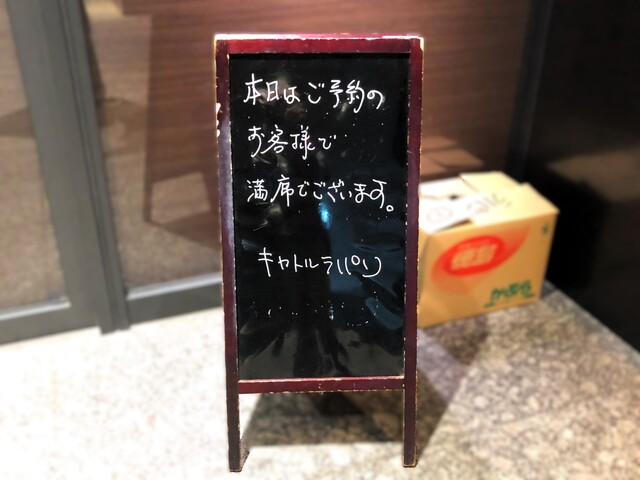 本日はご予約の
お客様で
満席でございます。
キャトルラパン
徳島